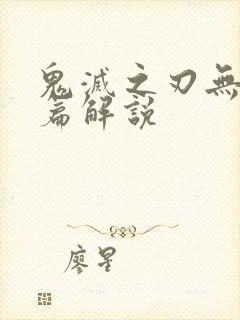 鬼滅之刃無
篇解説
廖星